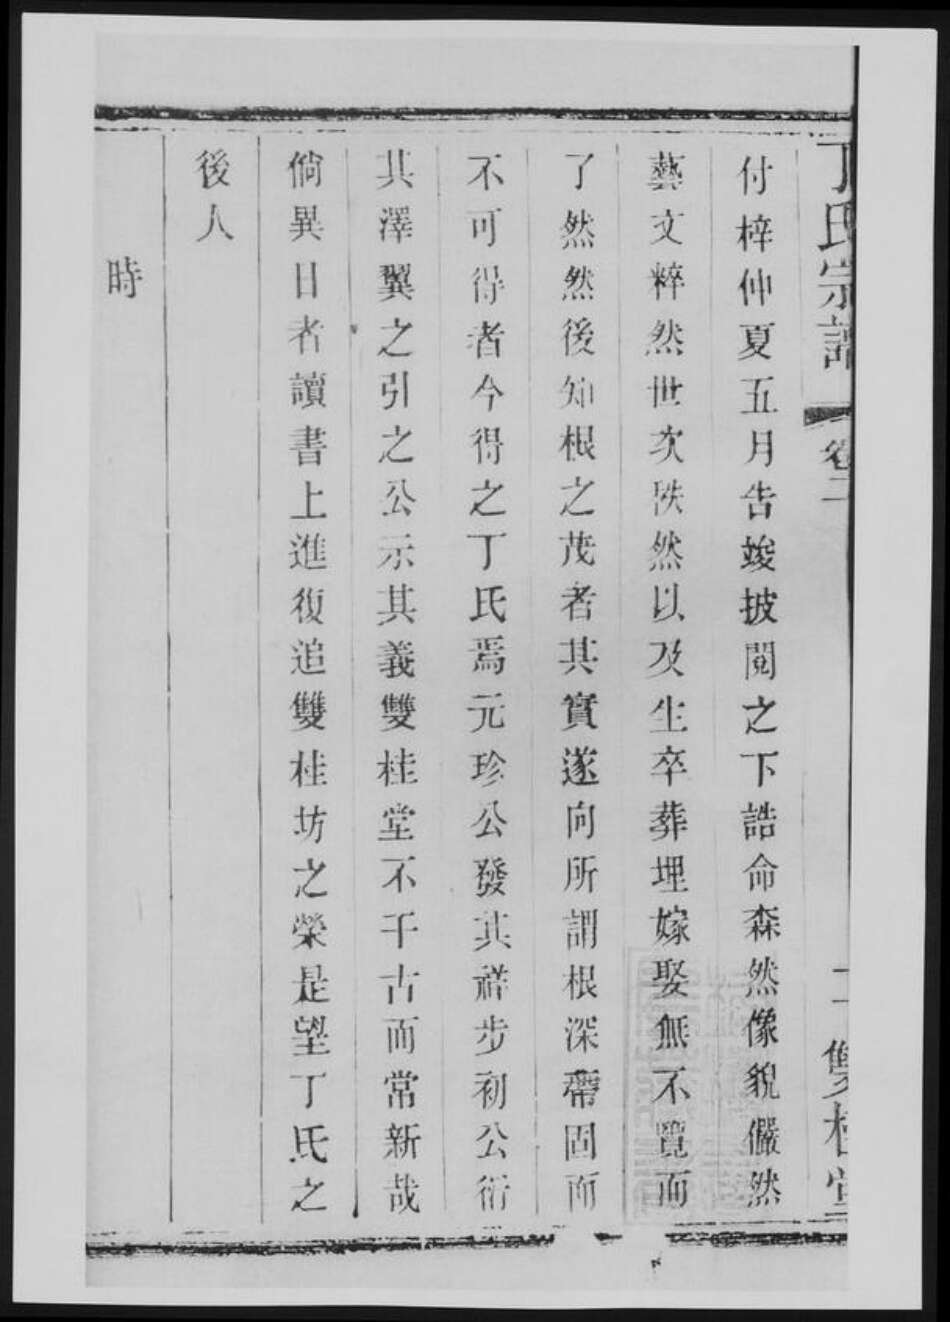 丁氏宗譜 卷二 二 雙桂堂
付梓仲夏五月告竣披閱之下誥命森然像貌儼然
藝文粹然世次跌然以及生卒葬埋嫁娶無不覽而
了然然後知根之茂者其實遂向所謂根深蒂固而
不可得者今得之丁氏焉元珍公發其祥步初公衍
其澤翼之引之公示其義雙桂堂不千古而常新哉
倘異日者讀書上進復追雙桂坊之榮是望丁氏之
後人
時